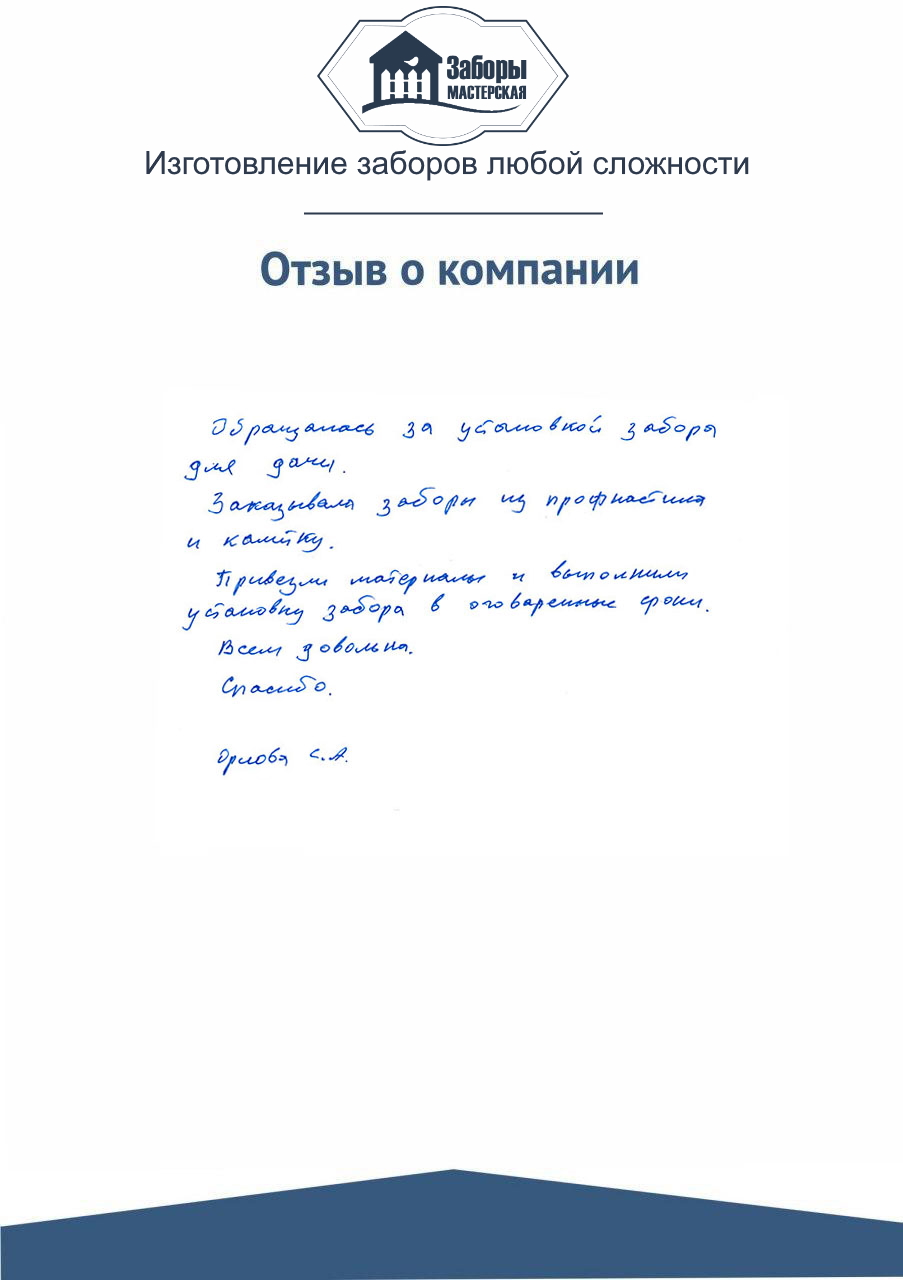 Заборы
МАСТЕРСКАЯ
Изготовление заборов любой сложности
Отзыв о компании
Обращалась за установкой забора
для дачи.
Заказывала заборы из профнастила
и калитку.
Привезли материалы и выполнили
установку забора в оговоренные сроки.
Всем довольна.
Спасибо.
Орлова С.А.